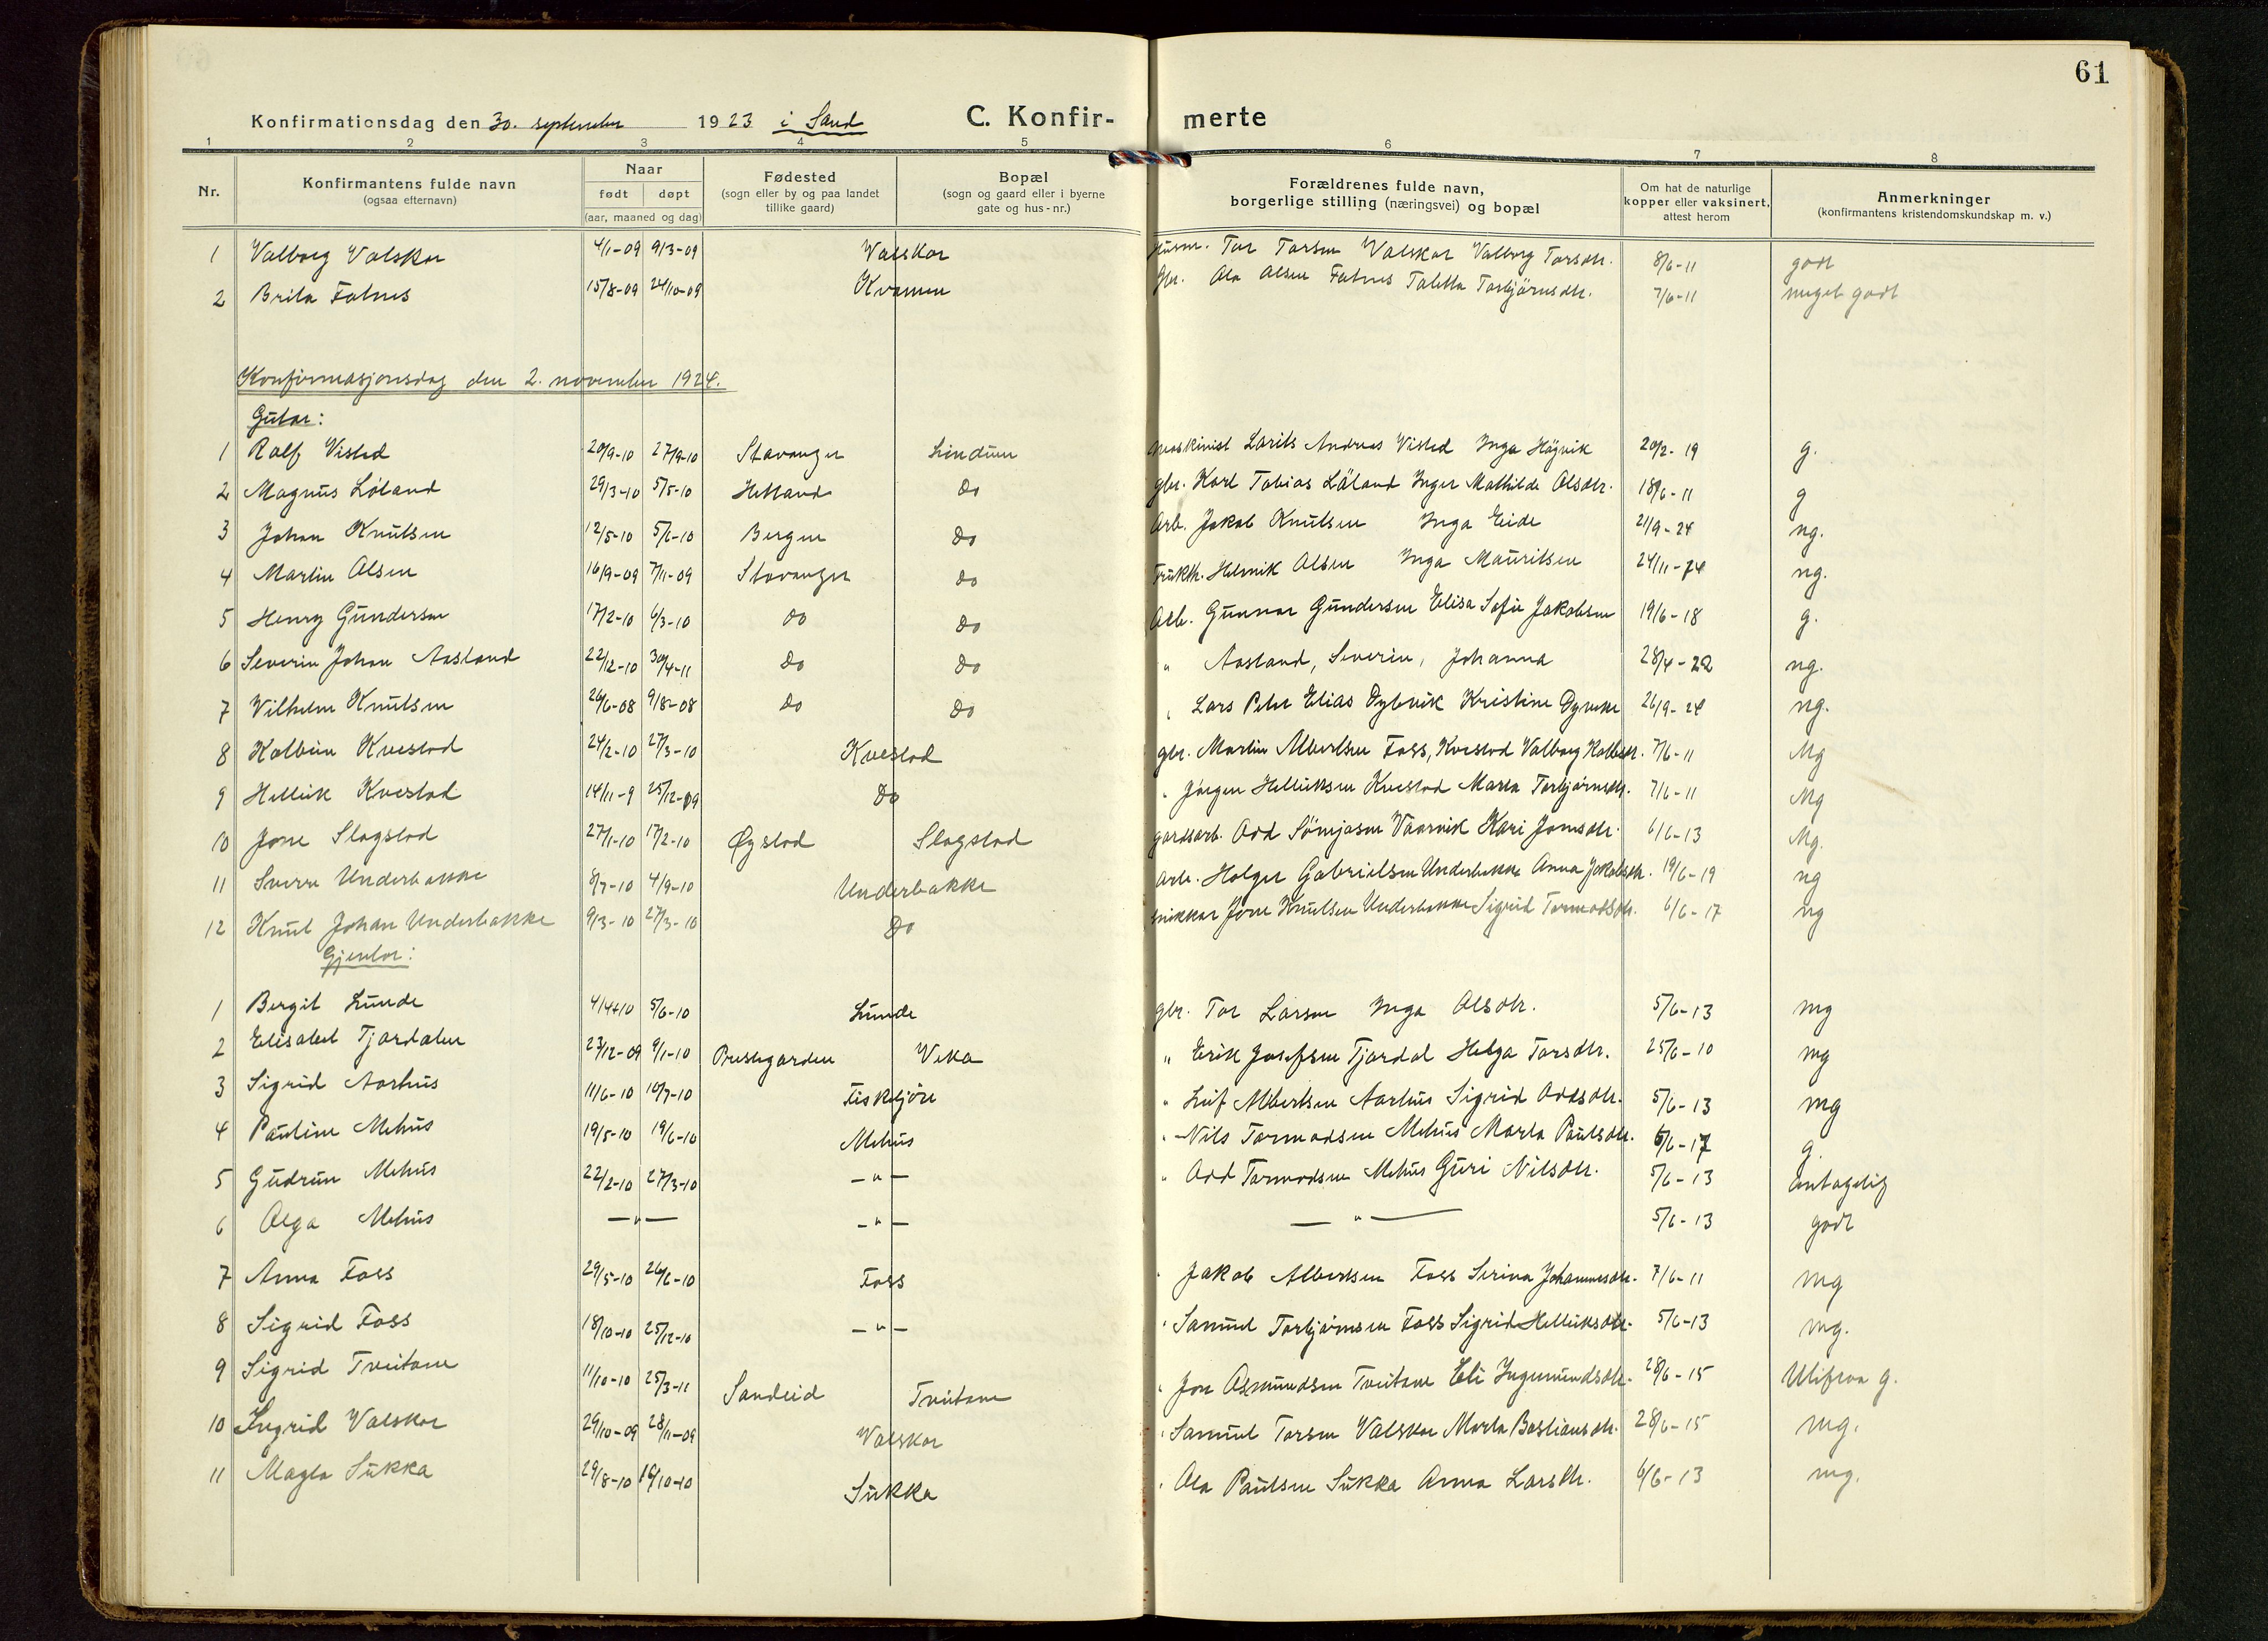 61
Konfirmationsdag den 30. september 1923 i Sand C. Konfir- merte
1 2 3 4 5 6 7 8
Nr. Konfirmantens fulde navn (ogsaa efternavn) Naar født døpt (aar, maaned og dag) Fødested (sogn eller by og paa landet tillike gaard) Bopæl (sogn og gaard eller i byerne gate og hus-nr.) Forældrenes fulde navn, borgerlige stilling (næringsvei) og bopæl Om hat de naturlige kopper eller vaksinert, attest herom Anmerkninger (konfirmantens kristendomskundskap m. v.)
1 Valborg Valskar 4/1-09 9/3-09 Valskar Husm. Tor Torsen Valskar Valborg Torsdtr. 8/6-11 godt
2 Brita Fatnes 15/8-09 24/10-09 Kvamen Gbr. Ola Olsen Fatnes Taletta Torbjörnsdtr. 7/6-11 meget godt
Konfirmasjonsdag den 2. november 1924.
Gutar:
1 Ralf Visted 20/9-10 27/9-10 Stavanger Lindum maskinist Larits Andreas Visted Inga Högvik 20/2-19 g.
2 Magnus Løland 29/3-10 5/5-10 Hetland Do gbr. Karl Tobias Löland Inger Mathilde Olsdtr. 18/6-11 g
3 Johan Knutsen 12/5-10 5/6-10 Bergen Do Arb. Jakob Knutsen Inga Eide 21/9-24 ng.
4 Martin Olsen 16/9-09 7/11-09 Stavanger Do Frukth. Helmik Olsen Inga Mauritsen 24/11-24 ng.
5 Henry Gundersen 17/2-10 6/3-10 Do Do Arb. Gunnar Gundersen Elisa Sofie Jakobsen 19/6-18 g.
6 Severin Johan Aasland 22/12-10 30/4-11 Do Do " Aasland, Severin, Johanna 28/4-22 ng.
7 Vilhelm Knutsen 26/6-08 9/8-08 Do Do " Lars Peter Elias Dybvik Kristine 26/9-24 ng.
8 Kolbein Kvestad 24/2-10 27/3-10 Kvestad gbr. Martin Albertsen Foss, Kvestad Valborg Kolbsdtr. 7/6-11 Mg
9 Helleik Kvestad 14/11-9 25/12-09 Do " Jörgen Helleiksen Kvestad Marta Torbjørnsdtr. 7/6-11 Mg
10 Jone Slagstad 27/1-10 17/2-10 Øystad Slagstad gardsarb. Odd Vaarvik Kari Jonsdtr. 6/6-13 Mg.
11 Sverre Underbakke 8/7-10 4/9-10 Underbakke Arb. Holger Gabrielsen Underbakke Anna Jakobsdtr. 19/6-19 ng
12 Knut Johan Underbakke 9/3-10 27/3-10 Do snikkar Jone Knutsen Underbakke Sigrid Tormodsdtr. 6/6-17 ng
Gjentor:
1 Bergit Lunde 4/4-10 5/6-10 Lunde gbr. Tor Larsen Inga Olsdtr. 5/6-13 mg
2 Elisabet Tjordalen 23/12-09 9/1-10 Prestegarden Veka " Erik Josefsen Tjordal Helga Torsdtr. 25/6-10 mg
3 Sigrid Aarhus 11/6-10 10/7-10 Fiskekjön " Leif Albertsen Aarhus Sigrid Oddsdtr. 5/6-13 mg
4 Pauline Mehus 19/5-10 19/6-10 Mehus " Nils Tormodsen Mehus Marta Paulsdtr. 6/6-17 g.
5 Gudrun Mehus 22/2-10 27/3-10 — " — " Odd Tormodsen Mehus Guri Nilsdtr. 5/6-13 antagelig
6 Olga Mehus — " — — " — — " — 5/6-13 godt
7 Anna Foss 29/5-10 26/6-10 Foss " Jakob Albertsen Foss Serina Johannesdtr. 7/6-11 mg
8 Sigrid Foss 18/10-10 25/12-10 — " — " Samuel Torbjørnsen Foss Sigrid Helleiksdtr. 5/6-13 mg.
9 Sigrid Tveitane 11/10-10 25/3-11 Sandeid Tveitane " Jon Asmundsen Tveitane Eli Ingemundsdtr. 28/6-15 g.
10 Ingrid Valskar 29/10-09 28/11-09 Valskar " Samuel Torsen Valskar Marta Bastiansdtr. 28/6-15 mg.
11 Magla Sukka 29/8-10 16/10-10 Sukka " Ola Paulsen Sukka Anna Larsdtr. 6/6-13 mg.